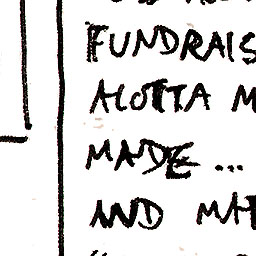 FUNDRAIS
ALOTTA M
MADE ...
AND MAT